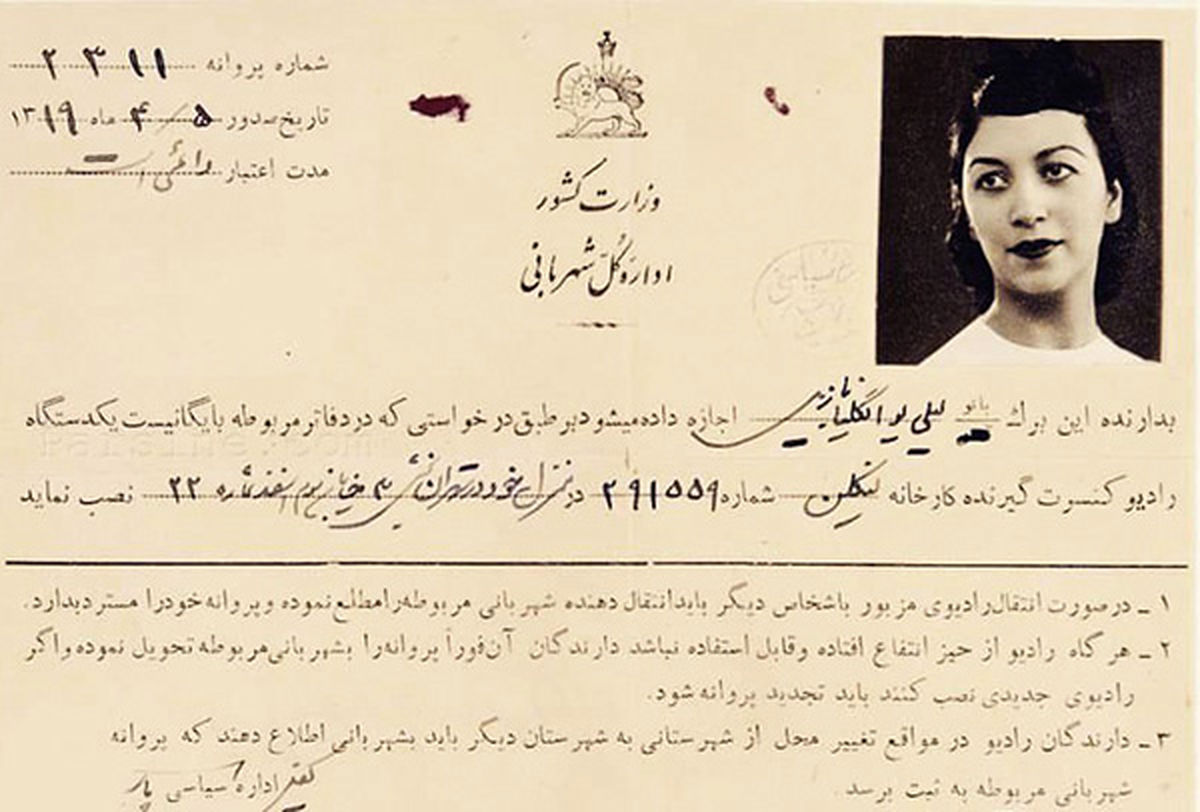 شماره پروانه ۲۳۱۱
تاریخ صدور ۵/۴ ماه ۱۳۱۹
مدت اعتبار دائمی است
وزارت کشور
اداره کل شهربانی
بدارنده این برك بانو لیلی اجازه داده میشود بر طبق درخواستی که در دفاتر مربوطه بایگانیست یکدستگاه
رادیو کنسرت گیرنده کارخانه شماره ۲۹۱۵۵۹ در منزل خود در تهران ۲۲ نصب نماید
۱ ـ در صورت انتقال رادیوی مزبور باشخاص دیگر باید انتقال دهنده شهربانی مربوطه را مطلع نموده و پروانه خود را مسترد بدارد.
۲ ـ هر گاه رادیو از حیز انتفاع افتاده وقابل استفاده نباشد دارندگان آن فوراً پروانه را بشهربانی مربوطه تحویل نموده واگر
رادیوی جدیدی نصب کنند باید تجدید پروانه شود.
۳ ـ دارندگان رادیو در مواقع تغییر محل از شهرستانی به شهرستان دیگر باید بشهربانی اطلاع دهند که پروانه
شهربانی مربوطه به ثبت برسد.
اداره سیاسی